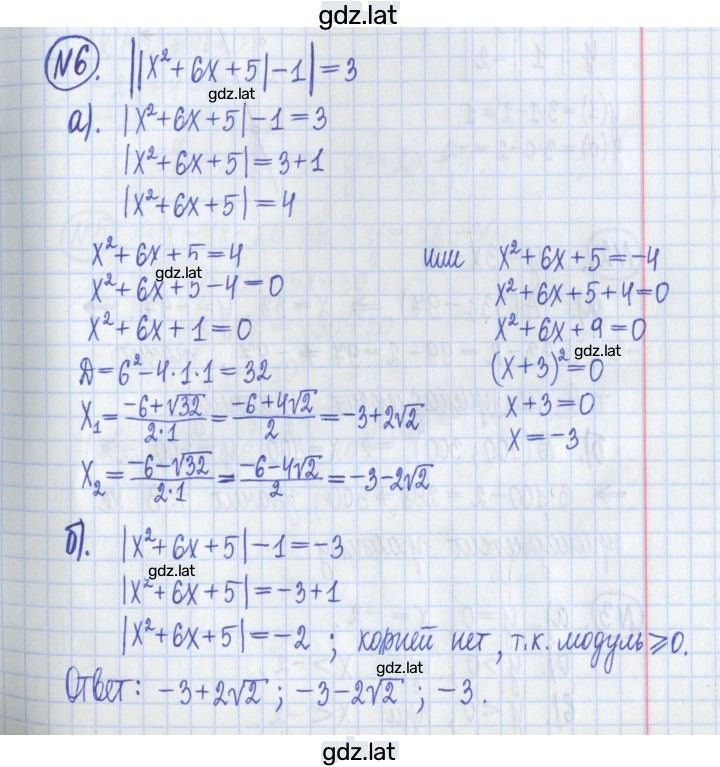 gdz.lat
№6. ||x²+6x+5|-1|=3
gdz.lat
а). |x²+6x+5|-1=3
|x²+6x+5|=3+1
|x²+6x+5|=4
x²+6x+5=4 или x²+6x+5=-4
gdz.lat
x²+6x+5-4=0 x²+6x+5+4=0
x²+6x+1=0 x²+6x+9=0
gdz.lat
Д=6²-4·1·1=32 (x+3)²=0
x₁=(-6+√32)/(2·1)=(-6+4√2)/2=-3+2√2 x+3=0
x=-3
x₂=(-6-√32)/(2·1)=(-6-4√2)/2=-3-2√2
б). |x²+6x+5|-1=-3
gdz.lat
|x²+6x+5|=-3+1
|x²+6x+5|=-2 ; корней нет, т.к. модуль ≥0.
gdz.lat
Ответ: -3+2√2 ; -3-2√2 ; -3.
gdz.lat